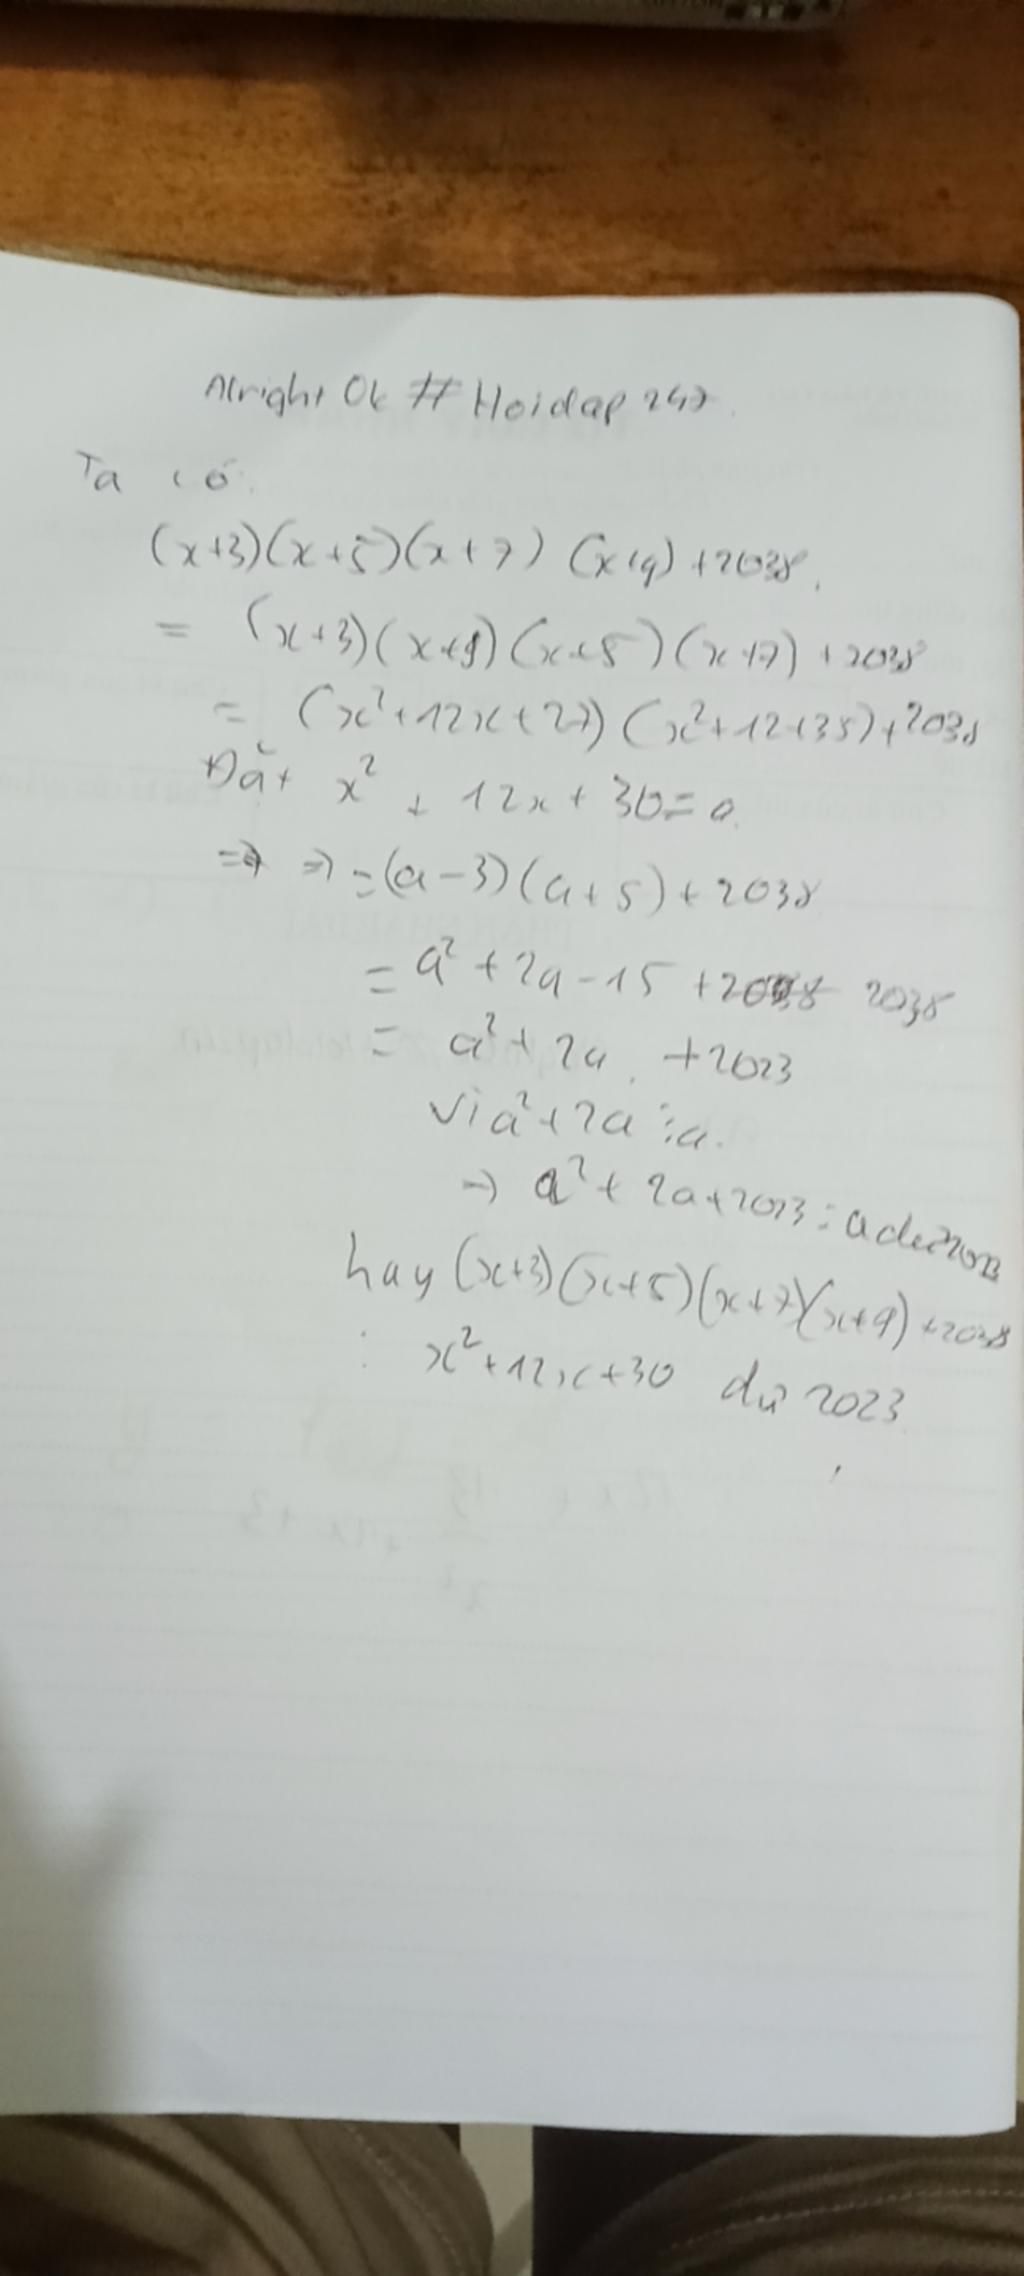 Alright Ok # Hoidap 247
Ta có
(x+3)(x+5)(x+7) (x+9) +2038.
= (x+3)(x+9)(x+5)(x+7) +2038
= (x²+12x+27)(x²+12+35)+2038
Đặt x² + 12x + 30 = a.
⇒ ⇒ =(a-3)(a+5)+2038
= a² + 2a - 15 + 2038
= a² + 2a + 2023
Vì a²+2a ⋮ a.
⇒ a² + 2a+2023 : a dư 2023
hay (x+3)(x+5)(x+7)(x+9) +2038
: x²+12x+30 dư 2023